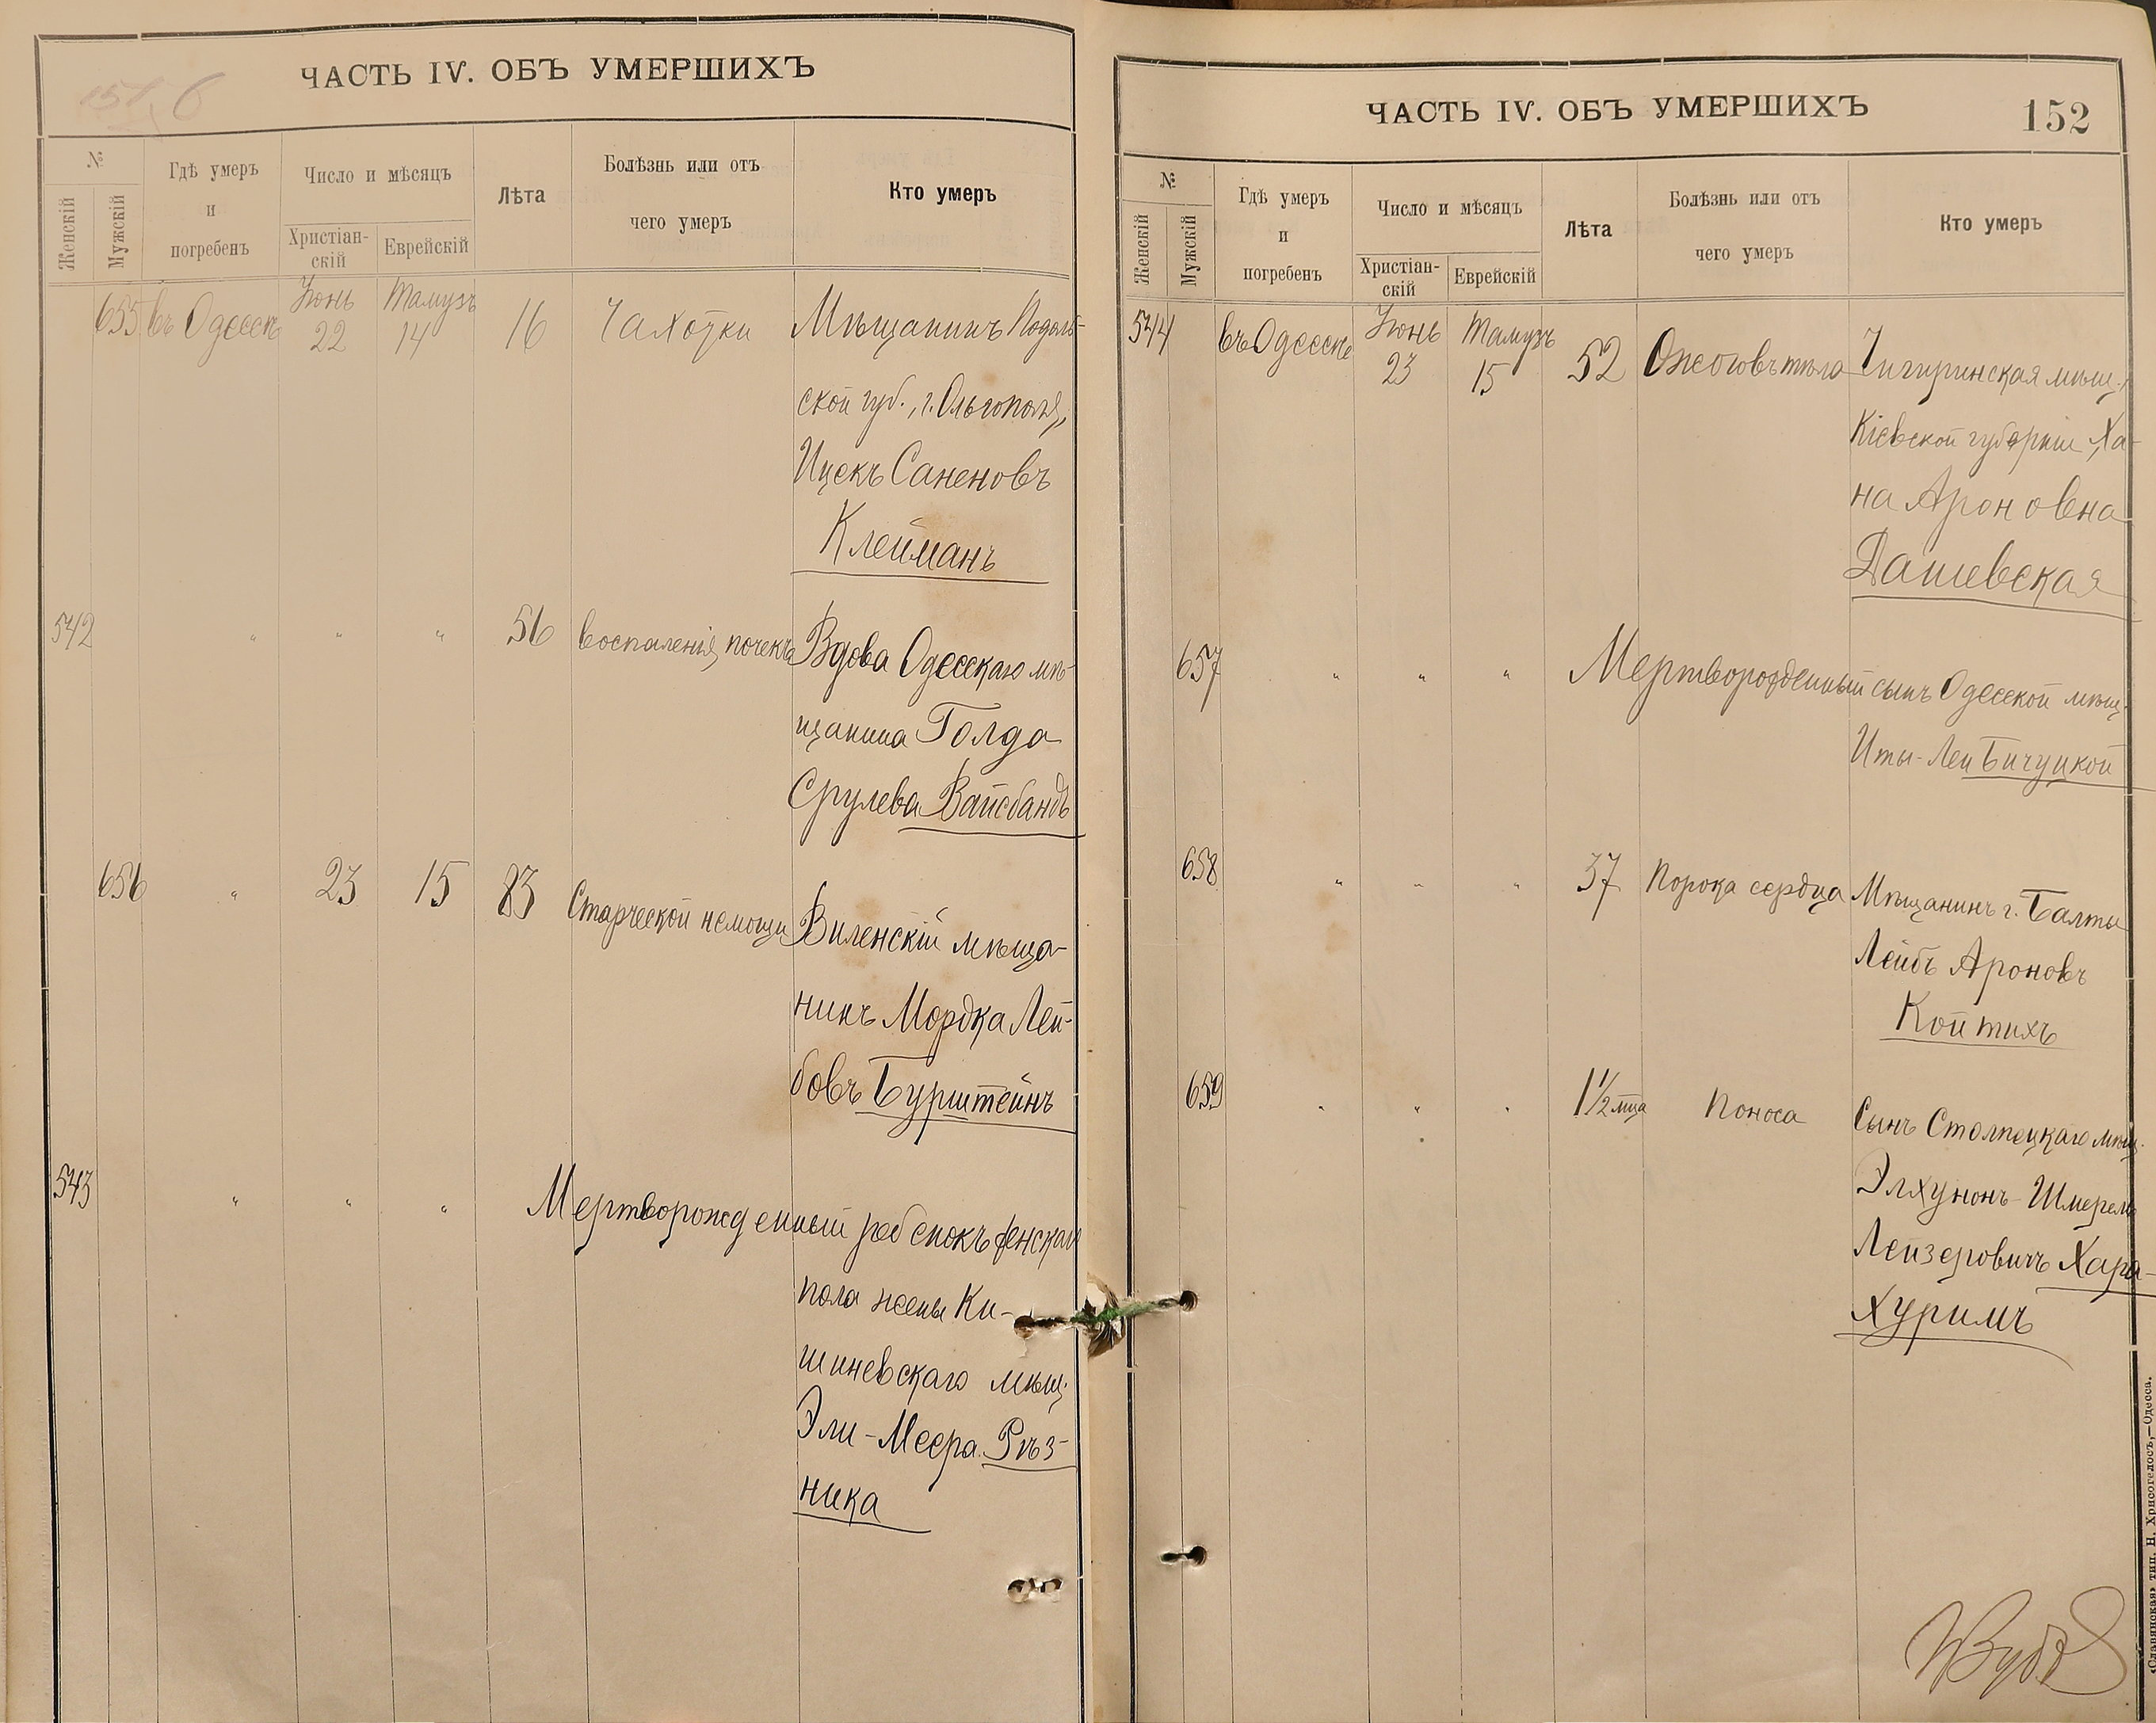 ЧАСТЬ IV. ОБЪ УМЕРШИХЪ
№
Женскій
Мужскій
Гдѣ умеръ
и
погребенъ
Число и мѣсяцъ
Христіан-
скій
Еврейскій
Лѣта
Болѣзнь или отъ
чего умеръ
Кто умеръ
655 въ Одессѣ Іюнь 22 Тамузъ 14 16 Чахотки Мѣщанинъ Подоль-
ской губ., г. Ольгополя,
Ицекъ Саненовъ
Клейманъ
542 " " " 56 воспаленія почекъ Вдова Одесскаго мѣ-
щанина Голда
Срулева Вайсбандъ
656 " 23 15 83 Старческой немощи Виленскій мѣща-
нинъ Мордка Лей-
бовъ Бурштейнъ
543 " " " Мертворожденный ребенокъ женскаго
пола жены Ки-
шиневскаго мѣщ.
Эли-Меера Рѣз-
ника
ЧАСТЬ IV. ОБЪ УМЕРШИХЪ
152
№
Женскій
Мужскій
Гдѣ умеръ
и
погребенъ
Число и мѣсяцъ
Христіан-
скій
Еврейскій
Лѣта
Болѣзнь или отъ
чего умеръ
Кто умеръ
544 въ Одессѣ Іюнь 23 Тамузъ 15 52 Ожоговъ тѣла Чигиринская мѣщ.
Кіевской губерніи Ха-
на Ароновна
Дашевская
657 " " " Мертворожденный сынъ Одесской мѣщ.
Иты-Леи Бичуцкой
658 " " " 37 Порока сердца Мѣщанинъ г. Балты
Лейбъ Ароновъ
Койтихъ
659 " " " 1½ мца Поноса Сынъ Столпецкаго мѣщ.
Элхунонъ-Шмерель
Лейзеровичъ Хара-
хуримъ
«Славянская» тип. Н. Хрисогелосъ,—Одесса.